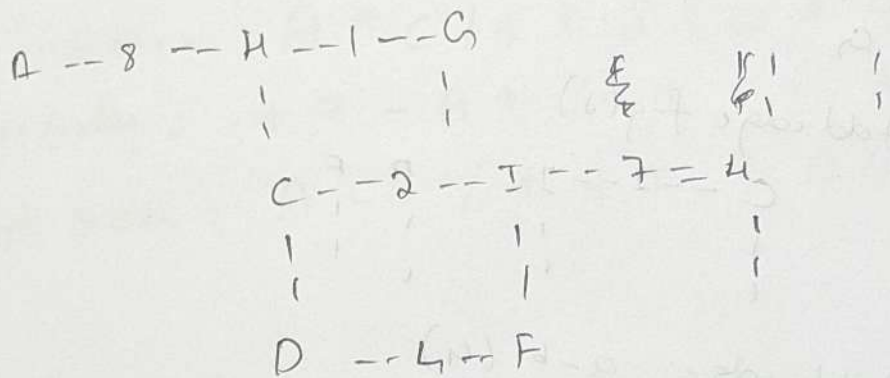 A -- 8 -- H -- 1 -- G
C -- 2 -- I -- 7 = H
D -- 4 -- F